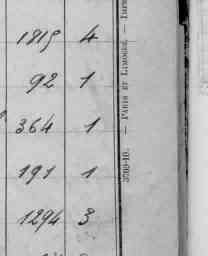 1815 4
92 1
364 1
191 1
1294 3
3700-10. — PARIS ET LIMOGES. — IMP